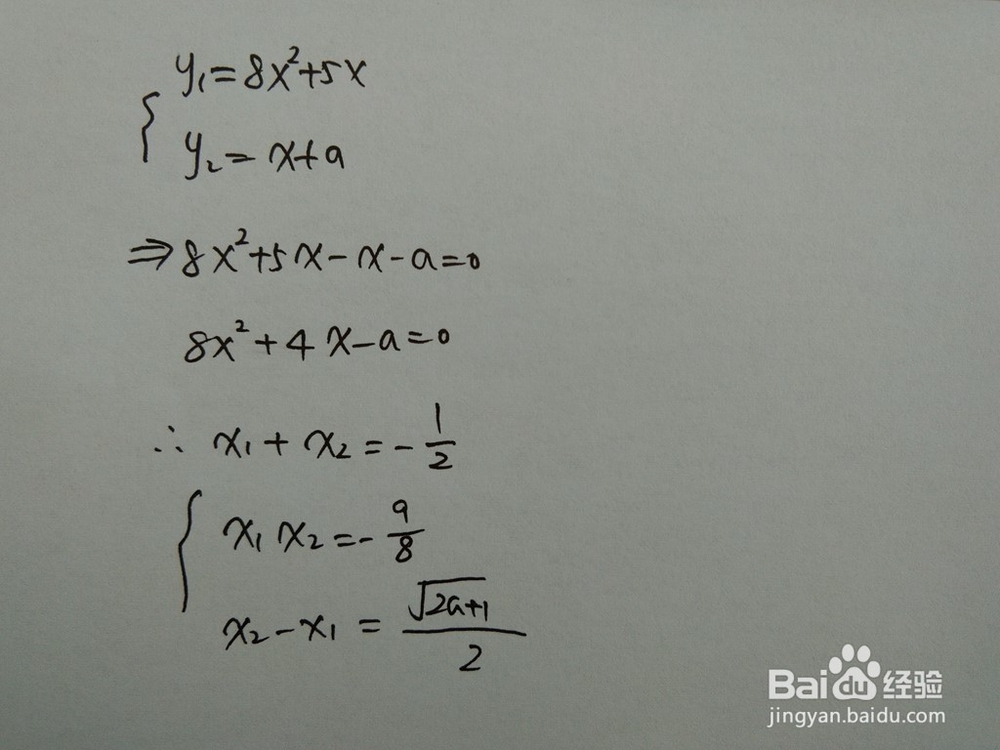 y₁=8x²+5x
y₂=x+a
⇒8x²+5x-x-a=0
8x²+4x-a=0
∴ x₁+x₂=-1/2
x₁x₂=-a/8
x₂-x₁=√(2a+1)/2
Baidu经验
jingyan.baidu.com